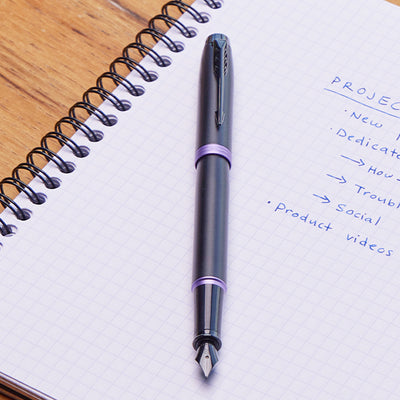 PROJEC
· New
· Dedicate
→ How-
→ Troubl
→ Social
· Product videos